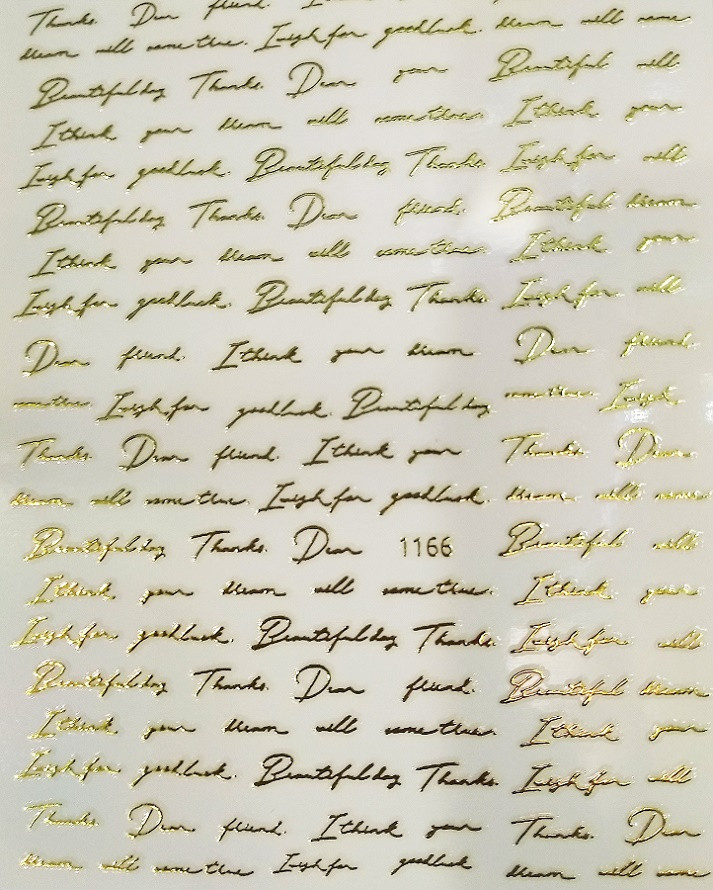 Thanks. Dear friend.
dream will come true. Iwigh for goodluck. dream will come
Beautiful day Thanks. Dear your Beautiful will
I think your dream will come true. I think your
Iwigh for goodluck. Beautiful day Thanks. Iwigh for will
Beautiful day Thanks. Dear friend. Beautiful dream
I think your dream will come true. I think your
Iwigh for goodluck. Beautiful day Thanks. Iwigh for will
Dear friend. I think your dream Dear friend.
come true. Iwigh for goodluck. Beautiful day come true. Iwigh
Thanks. Dear friend. I think your Thanks. Dear
dream will come true. Iwigh for goodluck. dream will come
Beautiful day Thanks. Dear 1166 Beautiful will
I think your dream will come true. I think your
Iwigh for goodluck. Beautiful day Thanks. Iwigh for will
Beautiful day Thanks. Dear friend. Beautiful dream
I think your dream will come true. I think your
Iwigh for goodluck. Beautiful day Thanks. Iwigh for will
Thanks. Dear friend. I think your Thanks. Dear
dream will come true Iwigh for goodluck dream will come